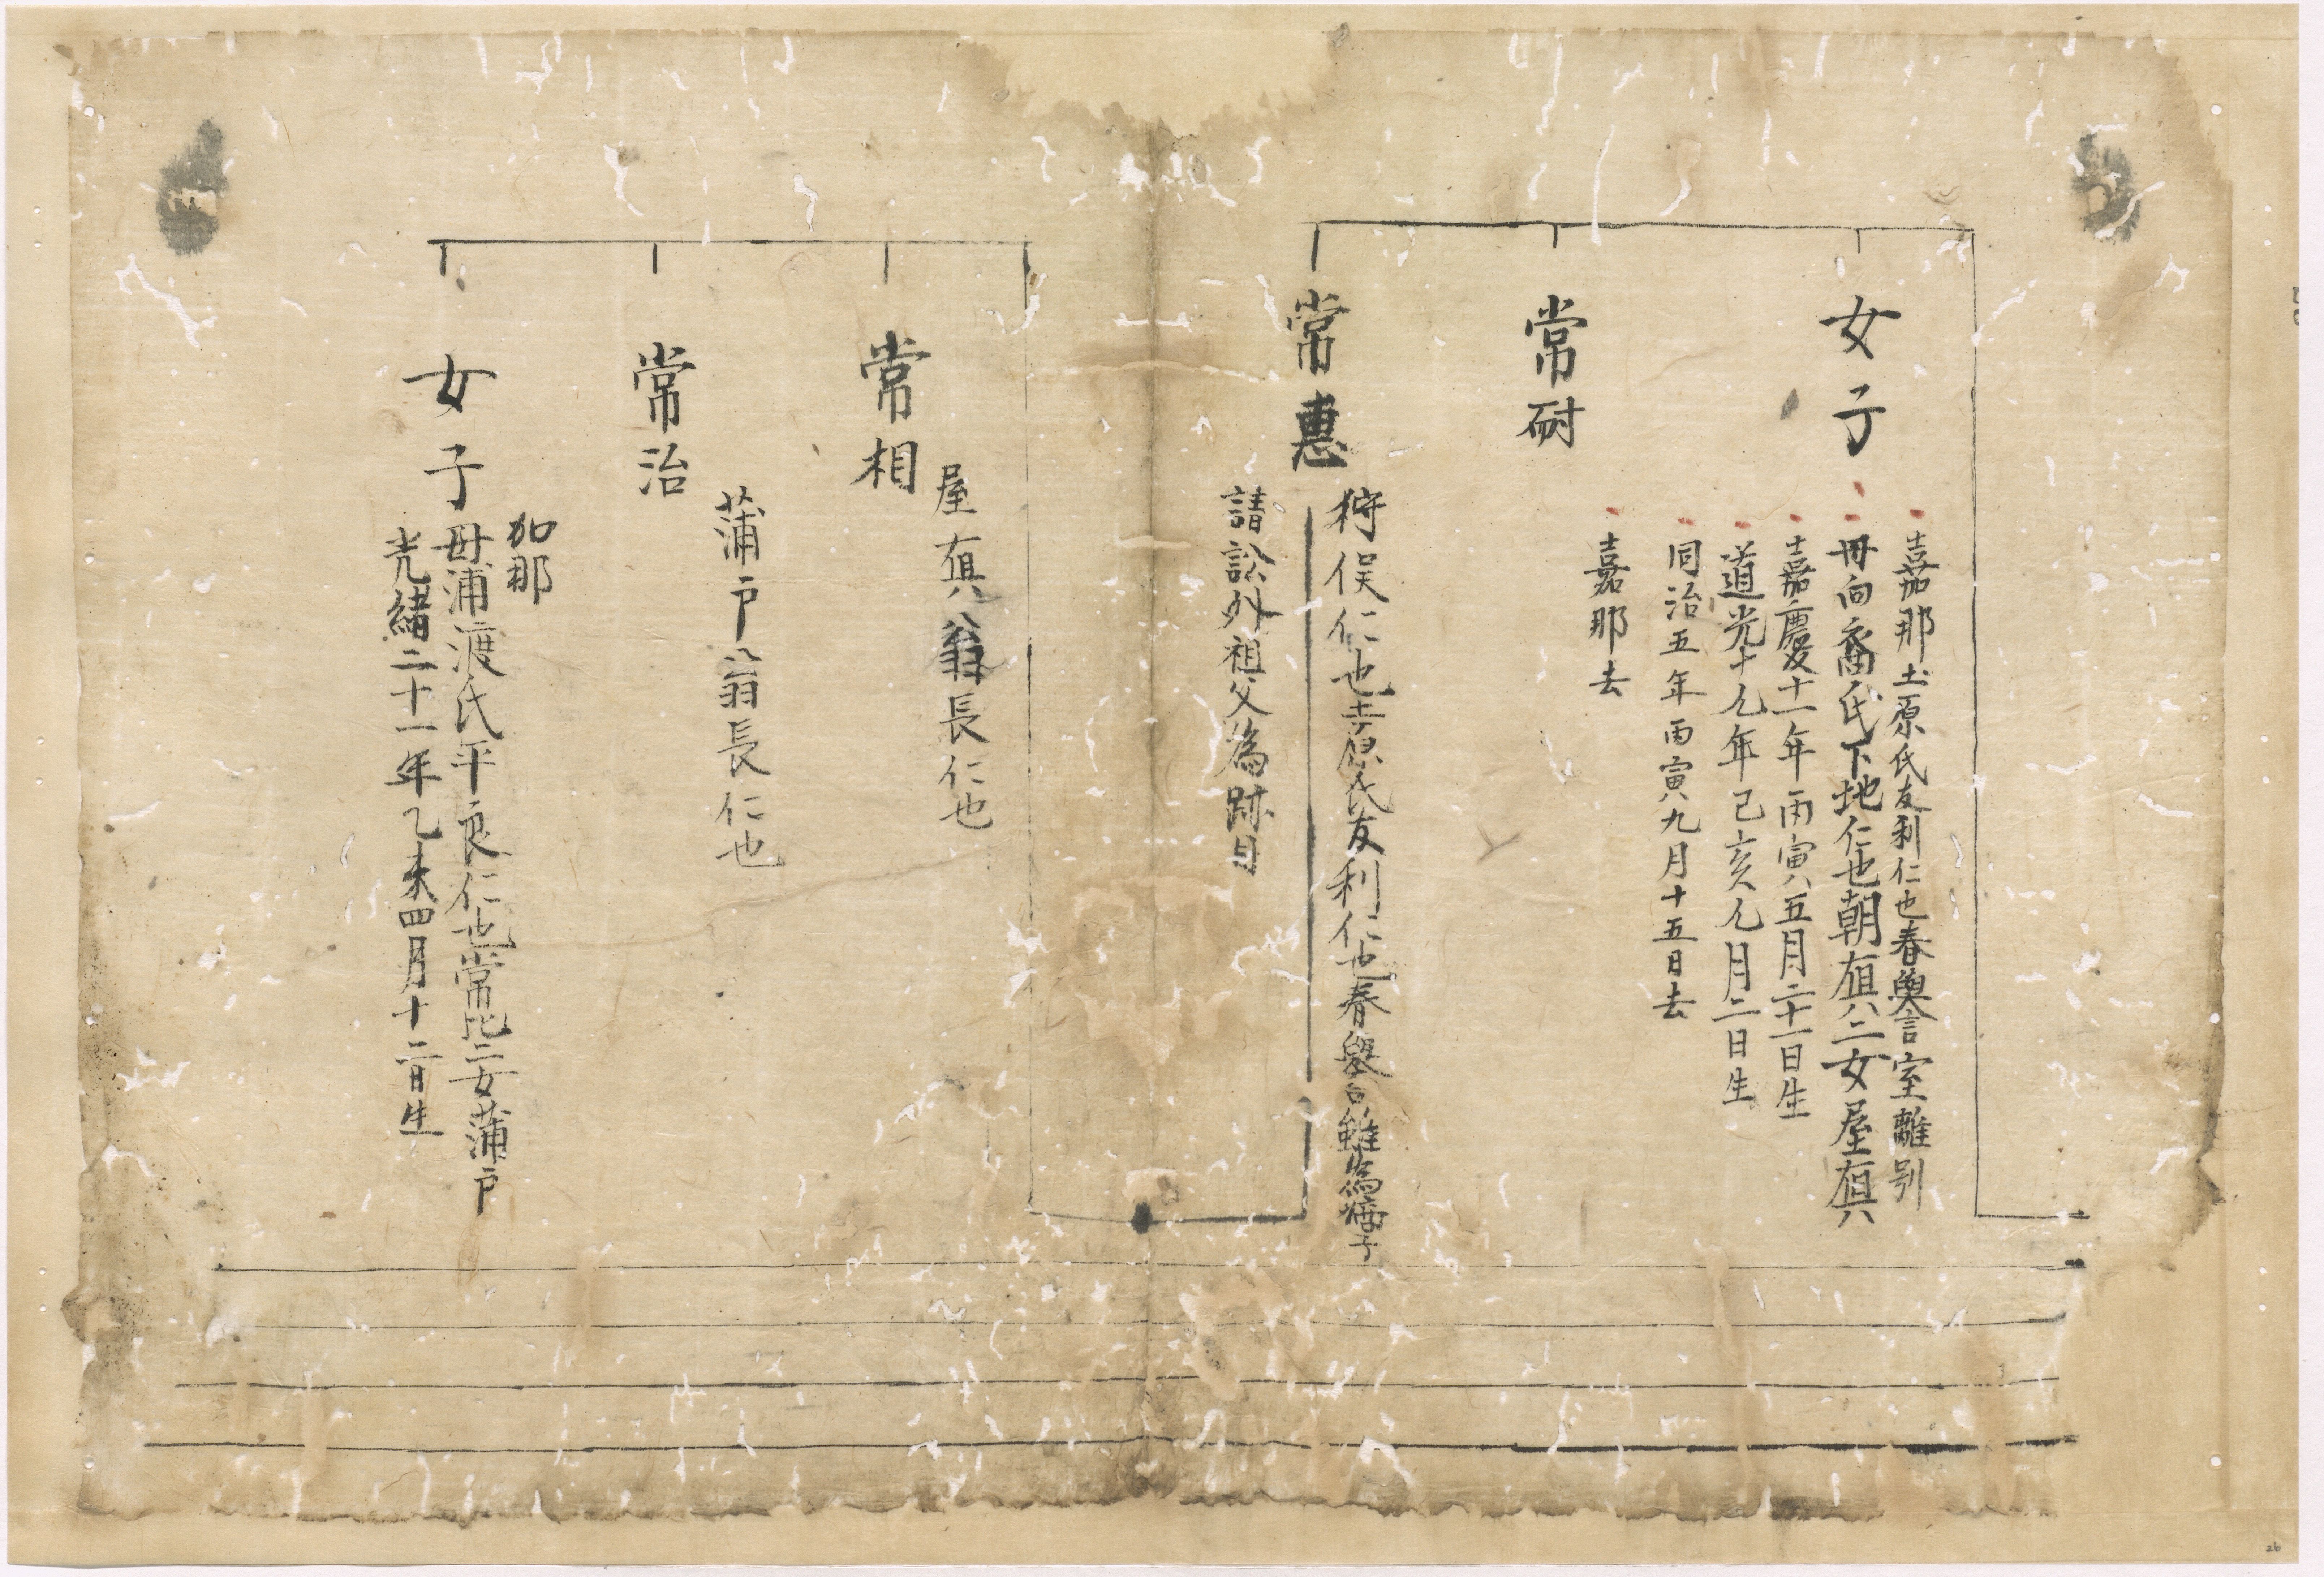 女子
嘉那土原氏友利仁也春與言室離別
毋向裔氏下地仁也朝䫫二女屋䫫
嘉慶十一年丙寅五月二十一日生
道光十九年己亥九月二日生
同治五年丙寅九月十五日去
嘉那去
常耐
常惠
狩俣仁也土原氏友利仁也春與言雖為嫡子
請訟外祖父為跡目
常相
屋䫫翁長仁也
常治
蒲戸翁長仁也
女子
加那
毋浦渡氏平良仁也常比二女蒲戸
光緒二十一年乙未四月十二日生
26